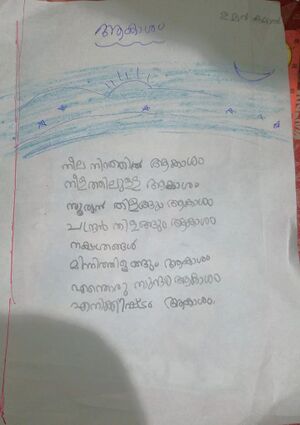 ആകാശം
നീല നിറത്തിൽ ആകാശം
നീളത്തിലുള്ള ആകാശം
സൂര്യൻ തിളങ്ങും ആകാശം
ചന്ദ്രൻ തിളങ്ങും ആകാശം
നക്ഷത്രങ്ങൾ
മിന്നിത്തിളങ്ങും ആകാശം
എന്തൊരു സുന്ദര ആകാശം
എനിക്കിഷ്ടം ആകാശം